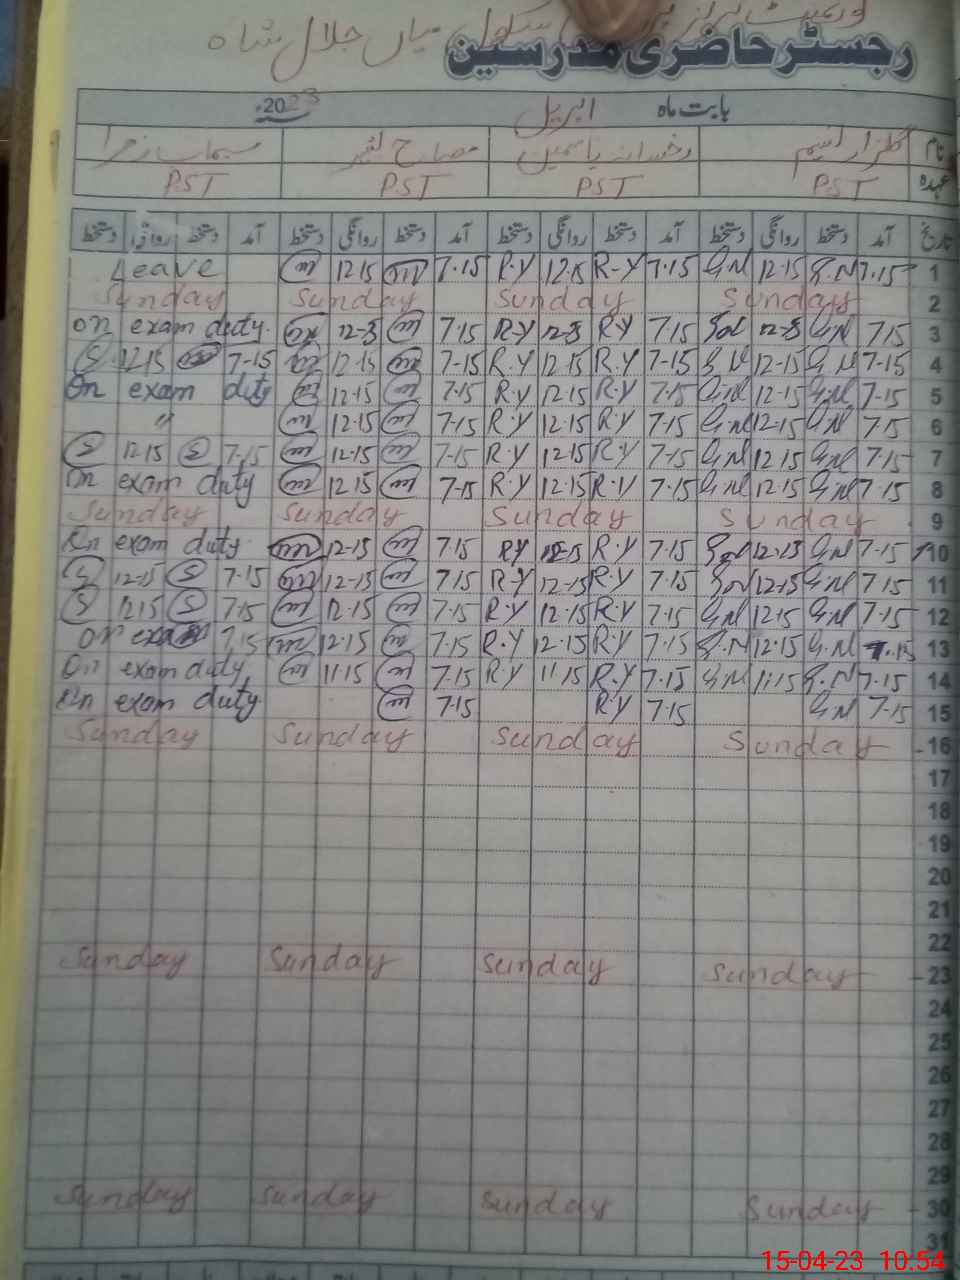 سکول میاں جلال شاہ
رجسٹر حاضری مدرسین
بابت ماہ اپریل 2023ء
نام گلزار نسیم رخسانہ یاسمین مصباح
عہدہ PST PST PST PST
تاریخ آمد دستخط روانگی دستخط آمد دستخط روانگی دستخط آمد دستخط روانگی دستخط آمد دستخط دستخط
Leave m 12.15 m 7.15 R.Y 12.15 R-Y 7.15 G.N 12.15 G.N 7.15 1
Sunday Sunday Sunday Sunday 2
on exam duty. m 12-3 m 7.15 R-Y 12-3 R.Y 7.15 12-3 G.N 7.15 3
S 12.15 7-15 m 12.15 m 7-15 R.Y 12.15 R.Y 7-15 G.N 12-15 G.N 7-15 4
On exam duty m 12.15 m 7.15 R.Y 12.15 R.Y 7.15 G.N 12.15 G.N 7-15 5
" m 12.15 m 7.15 R.Y 12.15 R.Y 7.15 G.N 12-15 G.N 7.15 6
S 12.15 S 7-15 m 12-15 m 7-15 R.Y 12.15 R.Y 7-15 G.N 12.15 G.N 7.15 7
On exam duty m 12.15 m 7-15 R.Y 12.15 R.Y 7.15 G.N 12.15 G.N 7.15 8
Sunday Sunday Sunday Sunday 9
On exam duty m 12-15 m 7.15 R.Y R.Y 7.15 12.15 G.N 7-15 10
S 12-15 S 7.15 m 12-15 m 7.15 R-Y 12-15 R.Y 7.15 12-15 G.N 7.15 11
S 12.15 S 7.15 m 12.15 m 7.15 R.Y 12.15 R.Y 7.15 G.N 12.15 G.N 7.15 12
on 7.15 m 12.15 m 7.15 R.Y 12.15 R.Y 7.15 G.N 12.15 G.N 7.15 13
On exam duty m 11.15 m 7.15 R.Y 11.15 R.Y 7.15 G.N 11.15 G.N 7.15 14
On exam duty m 7.15 R.Y 7.15 G.N 7.15 15
Sunday Sunday Sunday Sunday 16
17
18
19
20
21
22
Sunday Sunday Sunday Sunday 23
24
25
26
27
28
29
Sunday Sunday Sunday Sunday 30
31
15-04-23 10:54